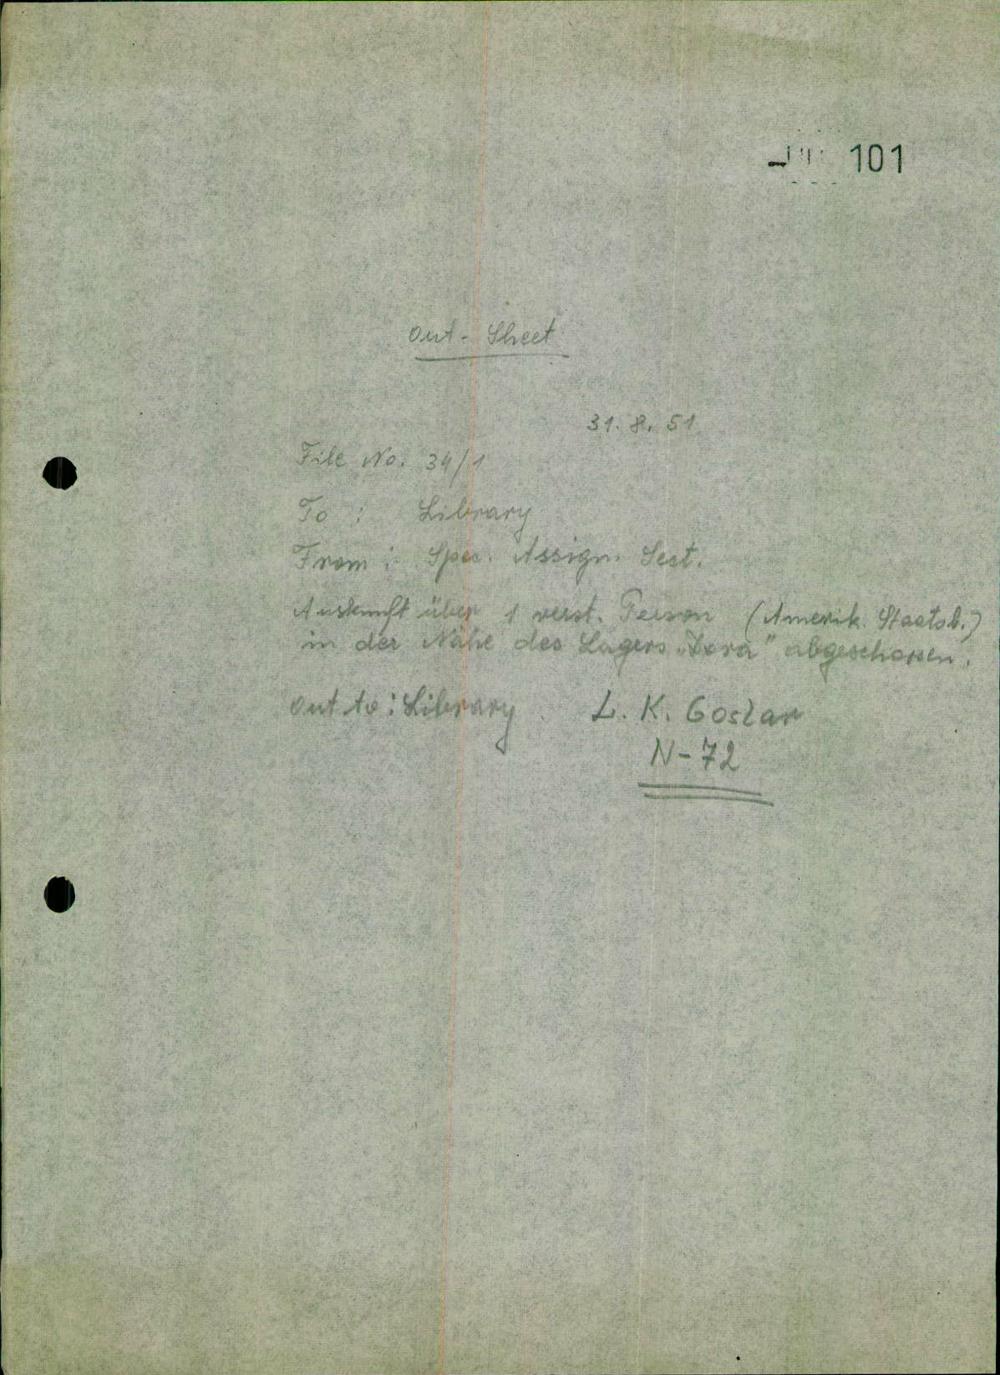 101
Out - Sheet
31. 8. 51
File No. 34/1
To : Library
From : Spec. Assign. Sect.
Auskunft über 1 verst. Person (Amerik. Staatsb.)
in der Nähe des Lagers „Dora" abgeschossen.
out to : Library L. K. Goslar
N-72